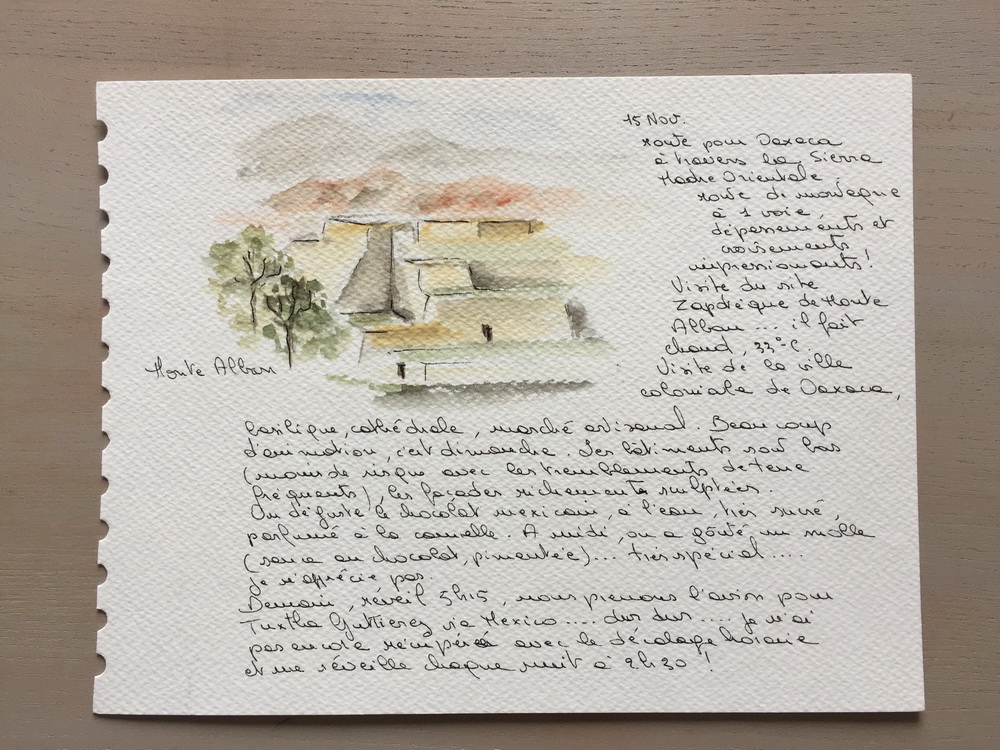 15 Nov.
route pour Oaxaca
à travers la Sierra
Madre Orientale.
route de montagne
à 1 voie,
dépassements et
croisements
impressionnants!
Visite du site
Zapotèque de Monte
Alban ... il fait
chaud, 33°C.
Visite de la ville
coloniale de Oaxaca,
Monte Alban
basilique, cathédrale, marché artisanal. Beaucoup
d'animation, c'est dimanche. Les bâtiments sont bas
(moins de risque avec les tremblements de terre
fréquents), les façades richement sculptées.
On déguste le chocolat mexicain, à l'eau, très sucré,
parfumé à la cannelle. A midi, on a goûté un mölle
(sauce au chocolat, pimentée)... très spécial....
Je n'apprécie pas.
Demain, réveil 5h15, nous prenons l'avion pour
Tuxtla Guttierez via Mexico .... dur dur .... Je n'ai
pas encore récupéré avec le décalage horaire
et me réveille chaque nuit à 2h30 !